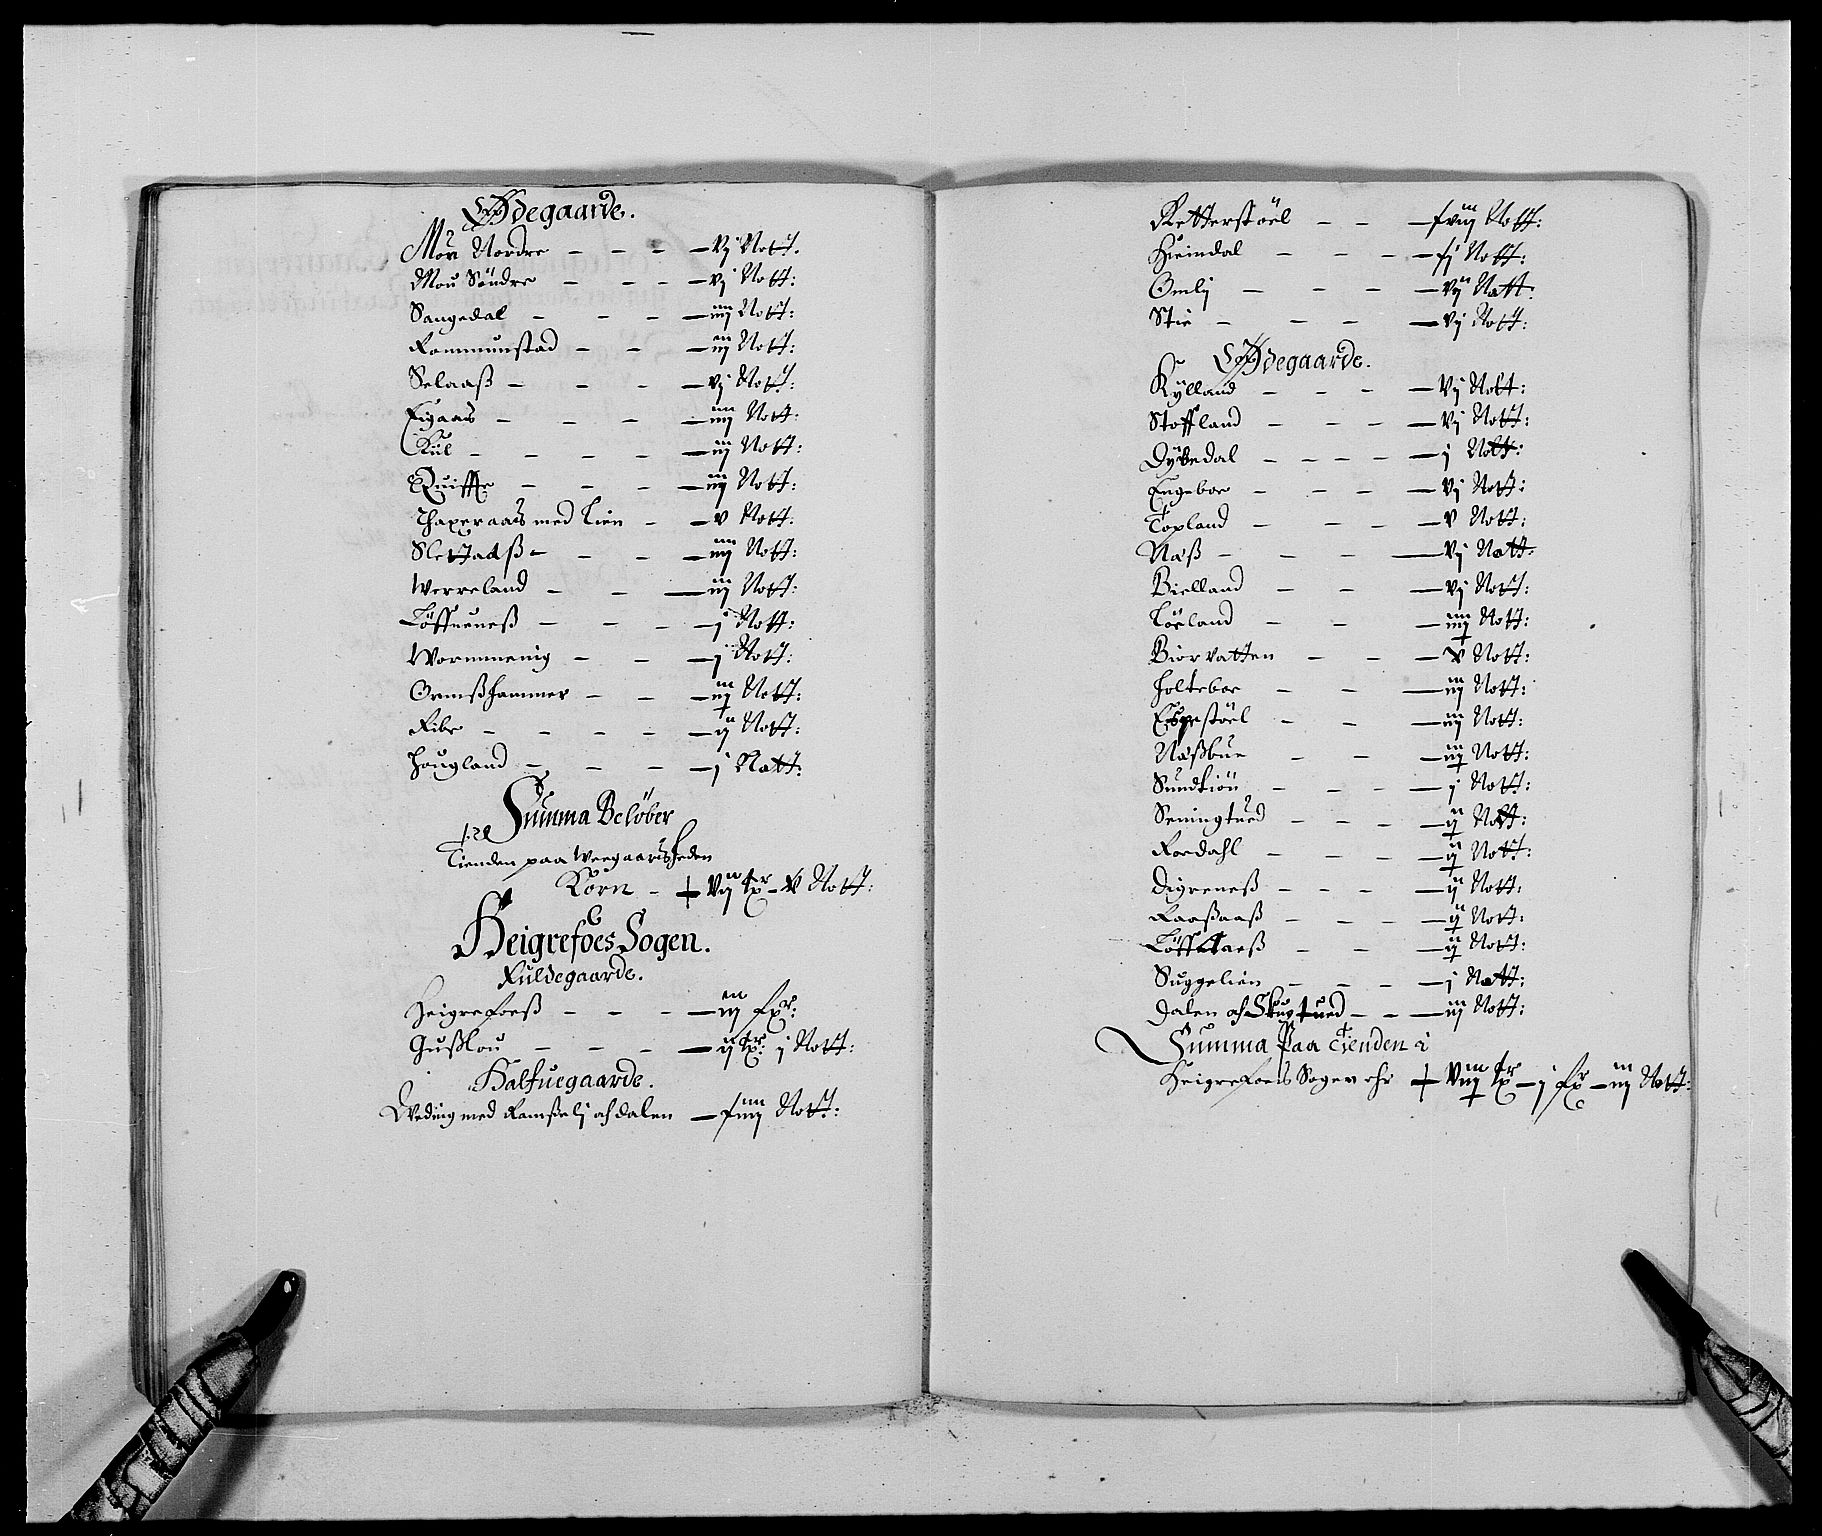 Ødegaarde.
Mou Nordre - - - vj Nott.
Mou Söndre - - - vj Nott:
Sangedal - - - iiij Nott:
Rommunstad - - iij Nott:
Selaaß - - - vj Nott:
Eigaas - - - iiij Nott:
Kiil - - - - iij Nott:
Quiffue - - - iij Nott:
Thaxeraas med Lien - v Nott:
Slettaaß - - - iiij Nott:
Werreland - - iij Nott:
Löffueneß - - - j Nott:
Wormmenig - - j Nott:
Ormßhammer - - iij Nott:
Ribe - - - - ij Nott:
Hougland - - - j Nott:
Summa Belöber
Tienden paa Weegaardsheden
Korn - vij tr - v Nott:
Heigrefoes Sogen.
Fuldegaarde.
Heigrefoeß - - - iij
Gußlou - - - ij tr: j Nott:
Halfuegaarde.
Weding med Ramßelj och Dalen - Nott:
Ketterstöel - - Nott:
Hieindal - - - Nott:
Omlj - - - vij Nott:
Stie - - - vj Nott:
Ødegaarde.
Kylland - - - vj Nott:
Stoffland - - - vj Nott:
Dybedal - - - - j Nott:
Engeboe - - - vj Nott:
Topland - - - v Nott:
Næß - - - vj Nott:
Bielland - - vj Nott:
Löeland - - iiij Nott:
Biorvatten - - v Nott:
Holteboe - - iij Nott:
Espestöel - - iij Nott:
Næßbue - - iij Nott:
Sundtiön - - - j Nott:
Seningtued - - - ij Nott:
Roedahl - - - ij Nott:
Digreneß - - - ij Nott:
Raaßaaß - - - ij Nott:
- - ij Nott:
Suggelien - - - j Nott:
Dalen och - - iij Nott:
Summa Paa Tienden i
Heigrefoeis Sogen ehr viij tr - j - iij Nott: